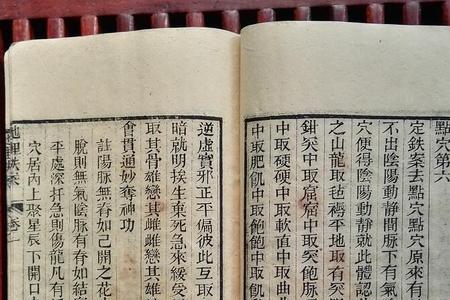 點穴第六
定鉄案去點穴點穴原來有
不出陰陽動静間脈下有氣
穴便得陰陽動静就此體認
之山龍取毡褥平地取有突
鉗突中取窟窟中取突飽脈
中取硬硬中取軟直中取曲
中取肥飢中取飽飽中取飢
逆虛實邪正平偏彼此互取
暗就明挨生棄死急來緩受
取其骨雄戀其雌雌戀其雄
會貫通妙奪神功
註陽脈無脊如己開之花
脫則無氣陰脈有脊如結
平處深扦急則傷龍凡有
穴居内上聚星辰下開口
地理鉄案 卷一